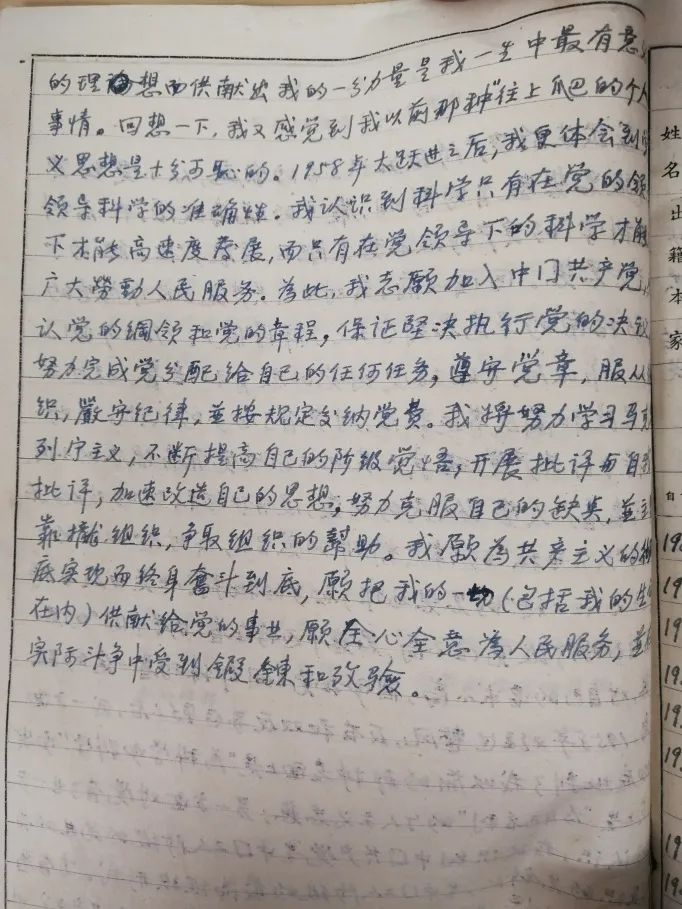 的理想而供献出我的一分力量是我一生中最有意
事情。回想一下,我又感觉到我以前那种"往上爬"的个人
义思想是十分可恥的。1958年大跃进之后,我更体会到党
领导科学的准确性。我认识到科学只有在党的领
下才能高速度发展,而只有在党领导下的科学才能
广大勞動人民服务。為此,我志願加入中国共产党,
认党的綱领和党的章程,保证坚决执行党的决议
努力完成党分配给自己的任何任务,遵守党章,服从
织,嚴守纪律,並按规定交纳党费。我将努力学习马克
列宁主义,不断提高自己的阶级觉悟,开展批评与自我
批评,加速改造自己的思想,努力克服自己的缺点,並主
靠攏组织,争取组织的幫助。我願為共产主义的
底实现而终身奮斗到底,願把我的一切(包括我的生
在内)供献给党的事业,願全心全意為人民服务,並
实际斗争中受到鍛鍊和攷驗。
姓
名
出
籍
本
家
自
19
19
19
19
19
19
19
19